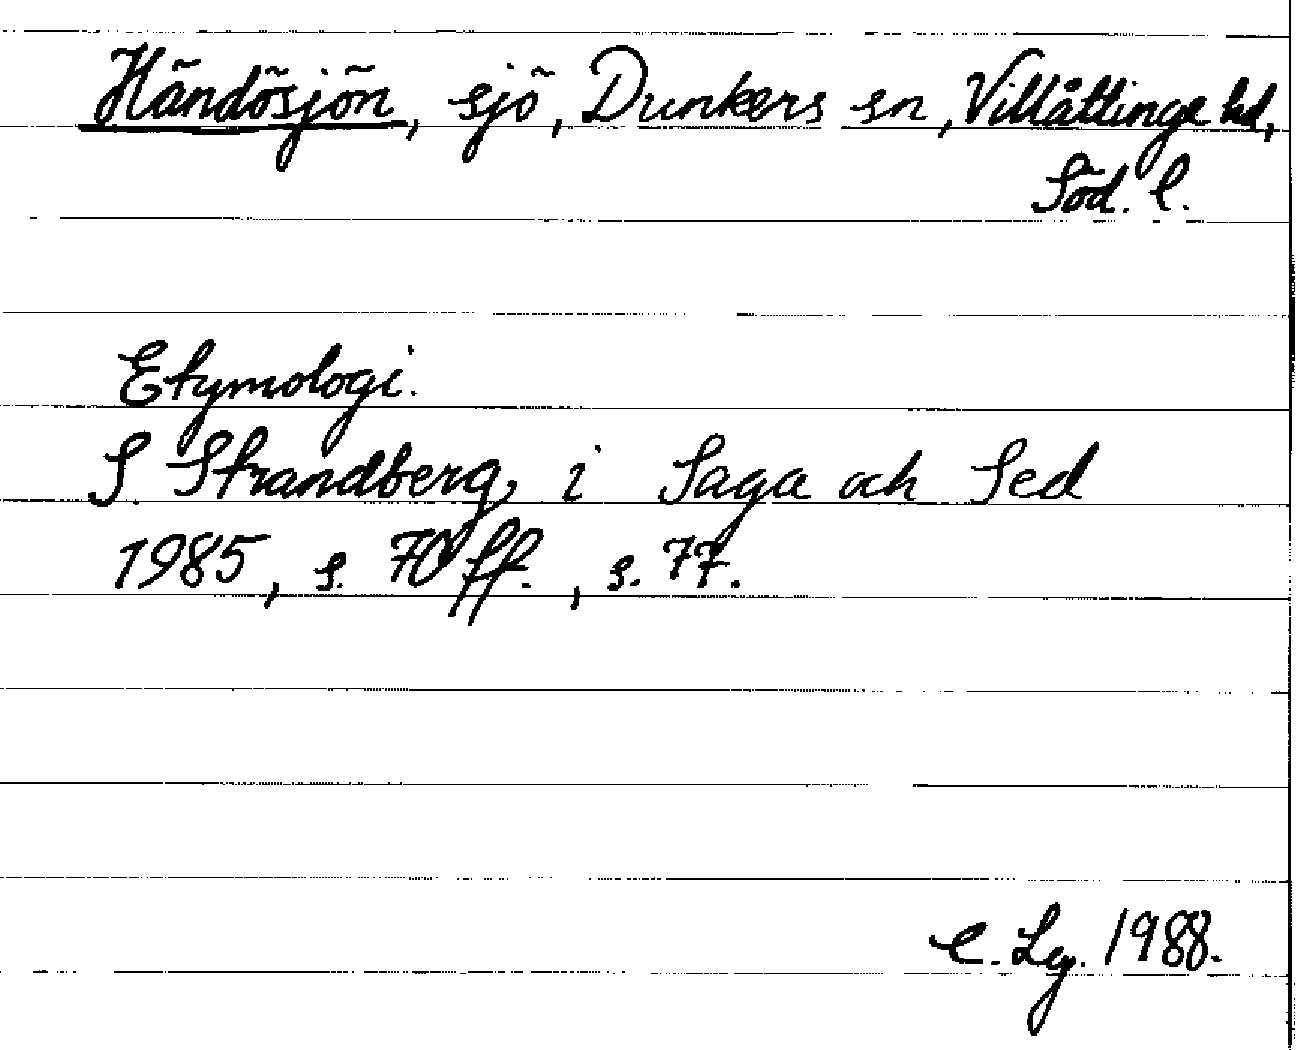 Händösjön, sjö, Dunkers sn, Villåttinge hd,
Söd. l.
Etymologi.
S. Strandberg, i Saga och Sed
1985, s. 70 ff., s. 77.
C. Lg. 1988.